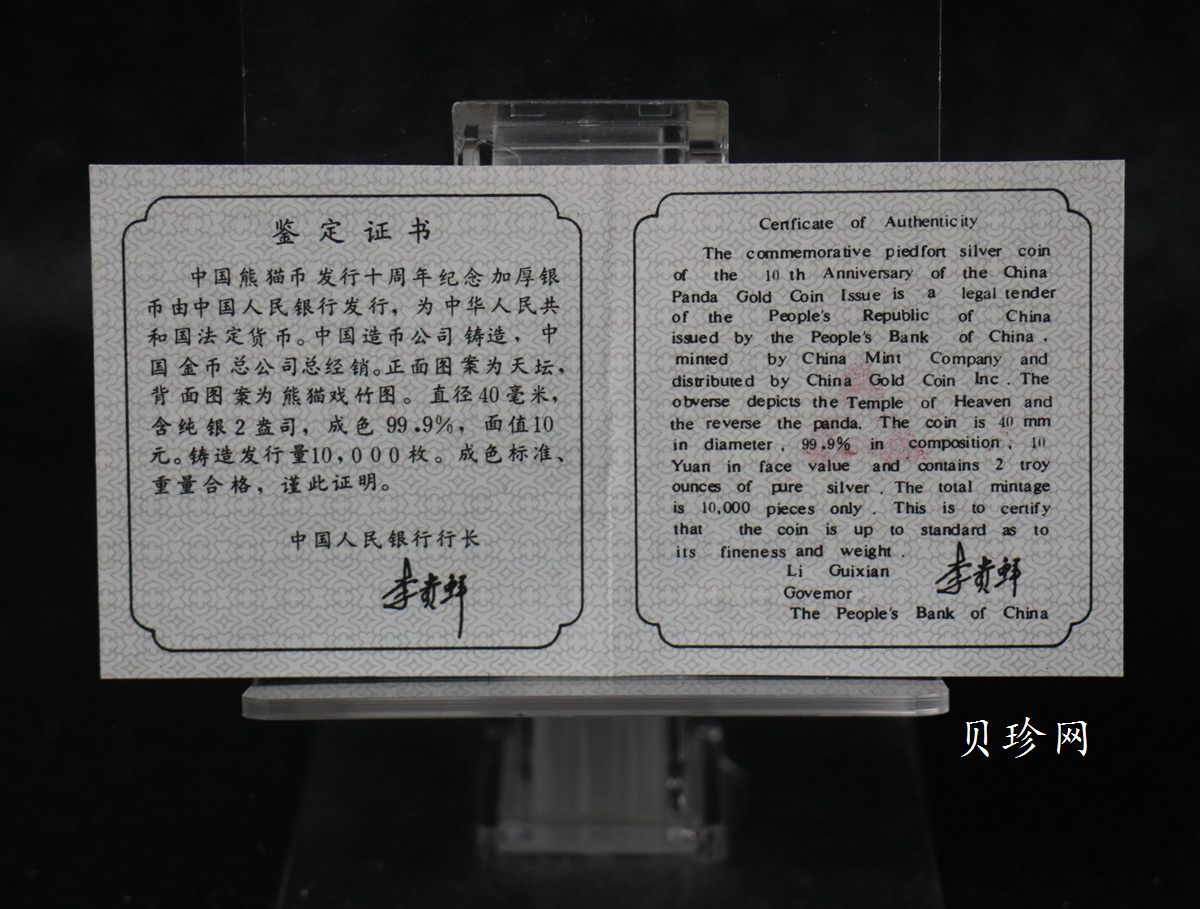 鉴定证书
中国熊猫币发行十周年纪念加厚银
币由中国人民银行发行，为中华人民共
和国法定货币。中国造币公司铸造，中
国金币总公司总经销。正面图案为天坛，
背面图案为熊猫戏竹图。直径40毫米，
含纯银2盎司，成色99.9%，面值10
元。铸造发行量10,000枚。成色标准、
重量合格，谨此证明。
中国人民银行行长
李贵鲜
Certficate of Authenticity
The commemorative piedfort silver coin
of the 10 th Anniversary of the China
Panda Gold Coin Issue is a legal tender
of the People's Republic of China
issued by the People's Bank of China ,
minted by China Mint Company and
distributed by China Gold Coin Inc . The
obverse depicts the Temple of Heaven and
the reverse the panda. The coin is 40 mm
in diameter , 99.9% in composition , 10
Yuan in face value and contains 2 troy
ounces of pure silver . The total mintage
is 10,000 pieces only . This is to certify
that the coin is up to standard as to
its fineness and weight .
Li Guixian
李贵鲜
Governor
The People's Bank of China
贝珍网